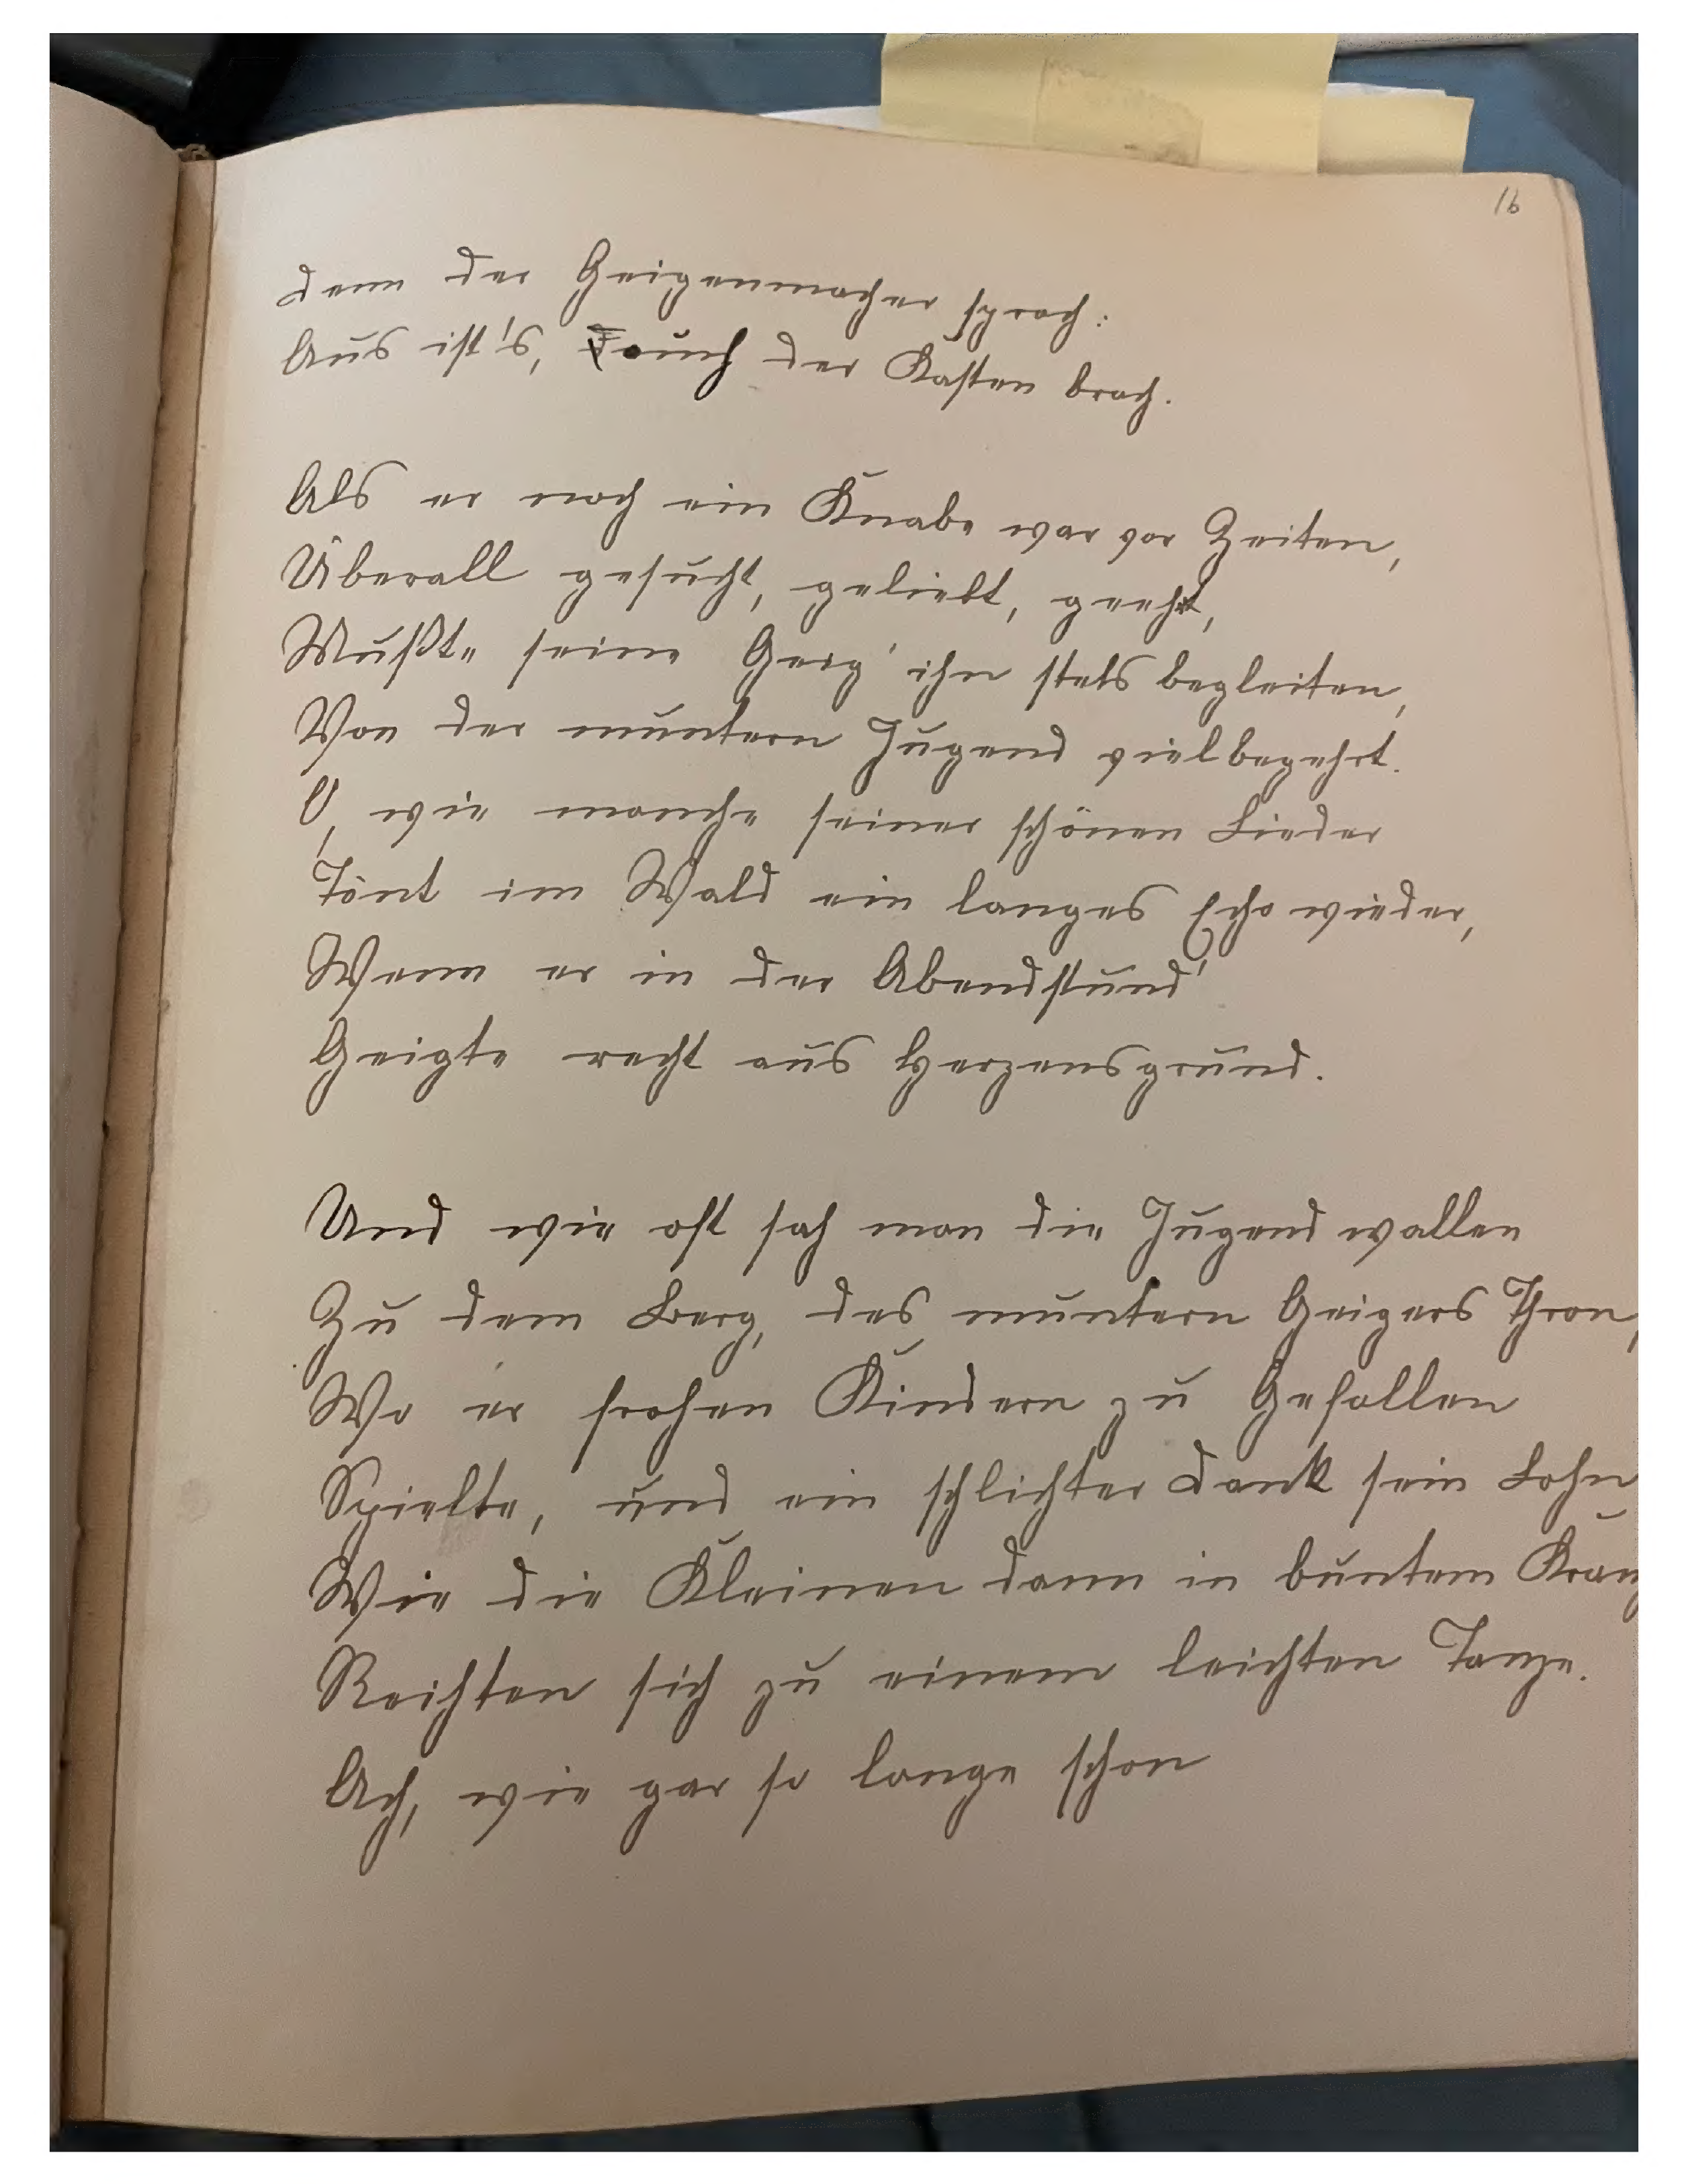 16
Denn der Geigenmacher sprach:
Aus ist's, auch der Kasten brach.
Als er noch ein Knabe war vor Zeiten,
Überall gesucht, geliebt, geehrt,
Mußte seine Geig' ihn stets begleiten,
Von der muntern Jugend vielbegehrt.
O, wie manche seiner schönen Lieder
Tönt im Wald ein langes Echo wieder,
Wenn er in der Abendstund'
Geigte recht aus Herzensgrund.
Und wie oft sah man die Jugend wallen
Zu dem Berg, des muntern Geigers Thron,
Wo er frohen Kindern zu Gefallen
Spielte, und ein schlichter Dank sein Lohn
Wie die Kleinen dann in buntem Kranz
Reihten sich zu einem leichten Tanze.
Ach, wie gar so lange schon